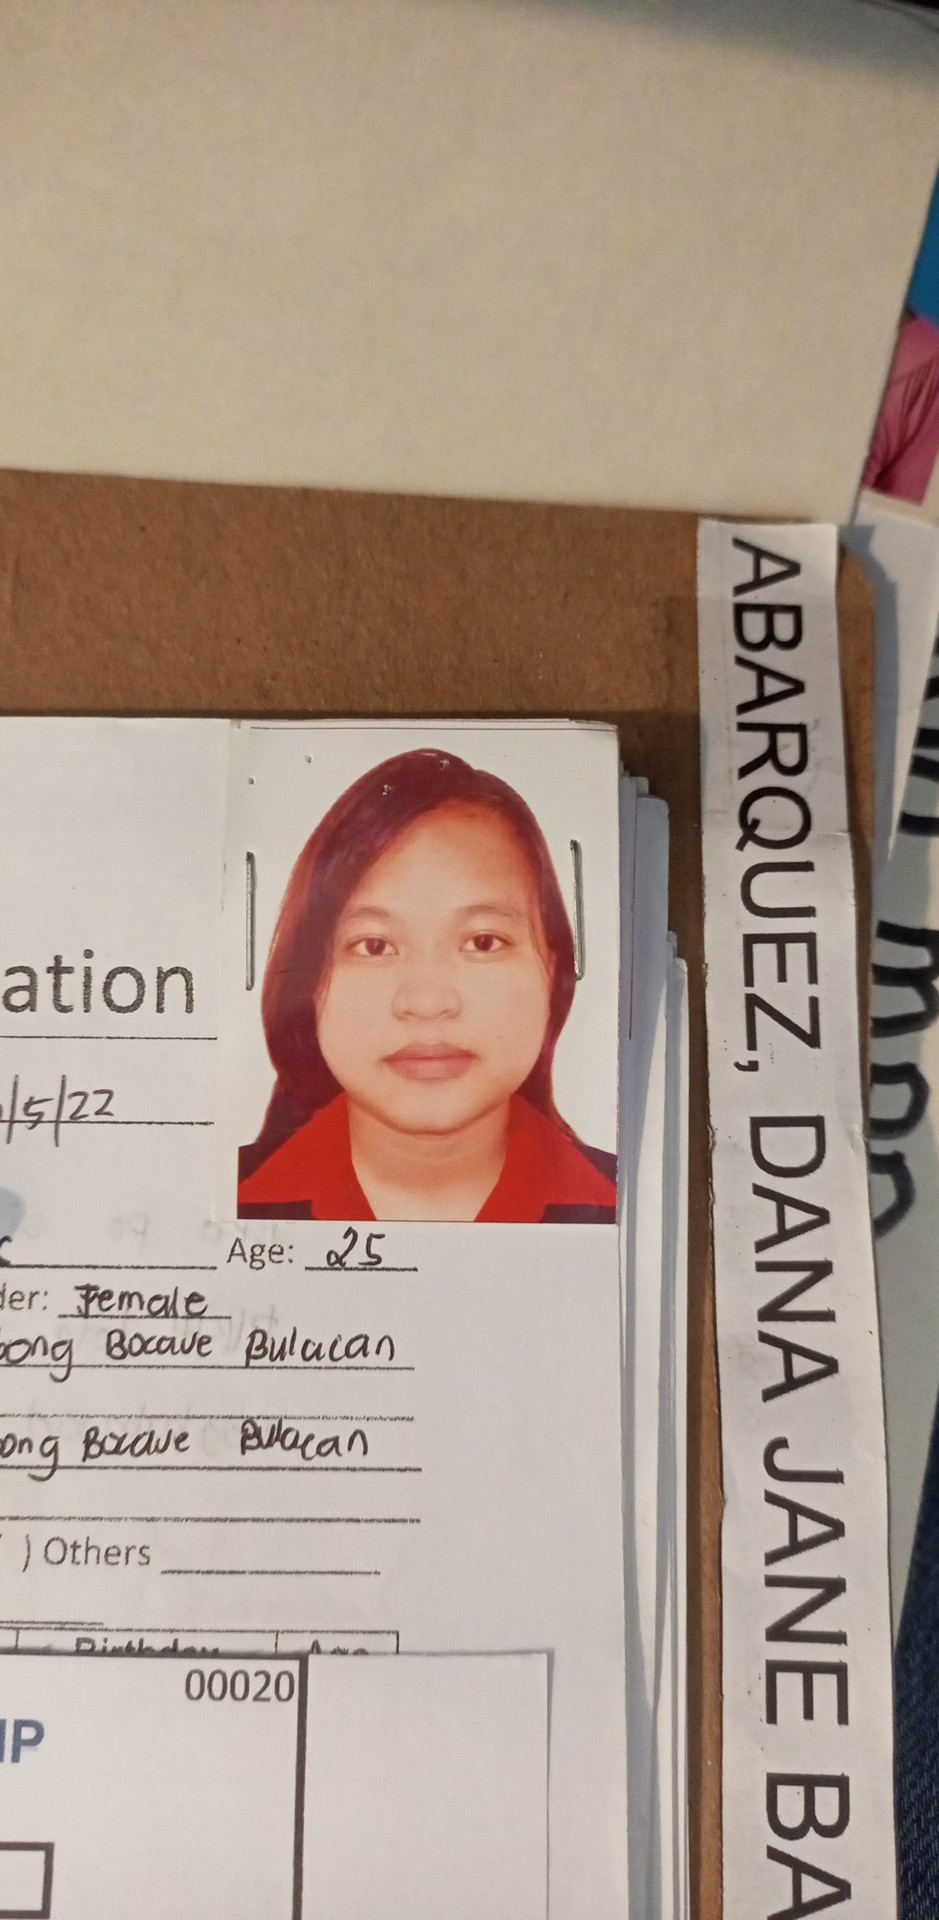 ation
/5/22
Age: 25
der: Female
bong Bocaue Bulacan
ong Bocaue Bulacan
) Others
Birthday Age
00020
IP
ABARQUEZ, DANA JANE BA